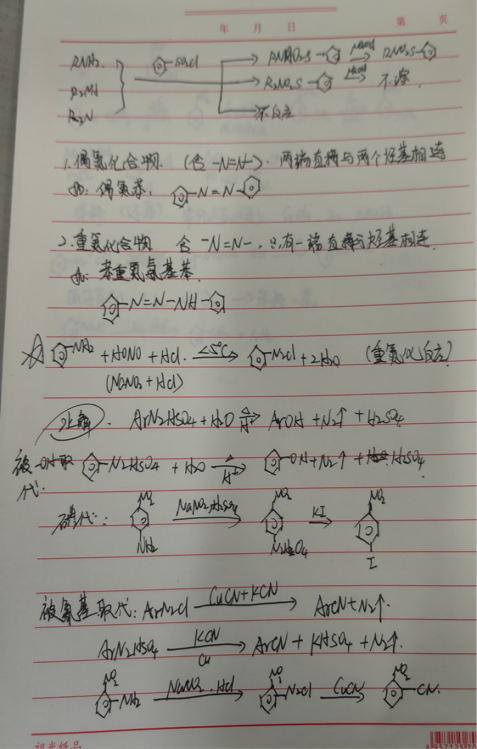 年 月 日 第 页
RNH2 R2NH R3N —SO2Cl → RNHO2S— NaOH → RNO2S—
R2NO2S— NaOH → 不溶.
不反应
1.偶氮化合物. (含 -N=N-). 两端直接与两个烃基相连
如: 偶氮苯. —N=N—
2.重氮化合物 含 -N=N-, 只有一端直接与烃基相连.
如: 苯重氮氨基苯.
—N=N—NH—
—NH2 + HONO + HCl <5°C → —N2Cl + 2H2O (重氮化反应)
(NaNO2 + HCl)
水解. ArN2HSO4 + H2O H+ ArOH + N2↑ + H2SO4
被-OH取代. —N2HSO4 + H2O H+ → —OH + N2↑ + H2SO4.
碘代: NO2 NH2 NaNO2,H2SO4 → NO2 KI → NO2 I
被氰基取代: ArN2Cl CuCN+KCN → ArCN+N2↑.
ArN2HSO4 KCN Cu → ArCN + KHSO4 + N2↑.
NO2 —NH2 NaNO2, HCl → NO2 —N2Cl CuCN → NO2 —CN.